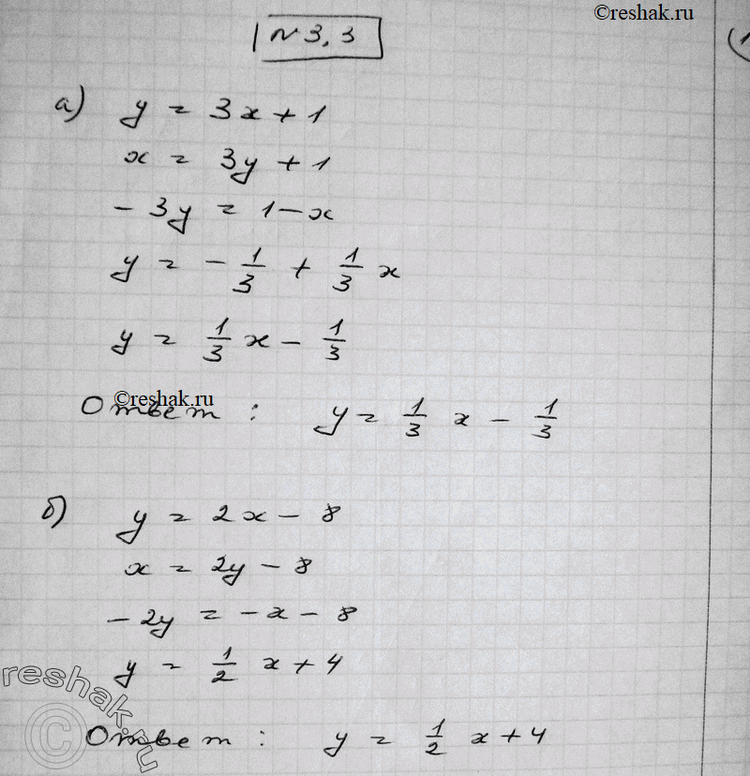 ©reshak.ru
№ 3,3
(1
а) y = 3x + 1
x = 3y + 1
- 3y = 1 - x
y = - 1/3 + 1/3 x
y = 1/3 x - 1/3
©reshak.ru
Ответ : y = 1/3 x - 1/3
б) y = 2x - 8
x = 2y - 8
- 2y = - x - 8
y = 1/2 x + 4
reshak.ru
©
Ответ : y = 1/2 x + 4